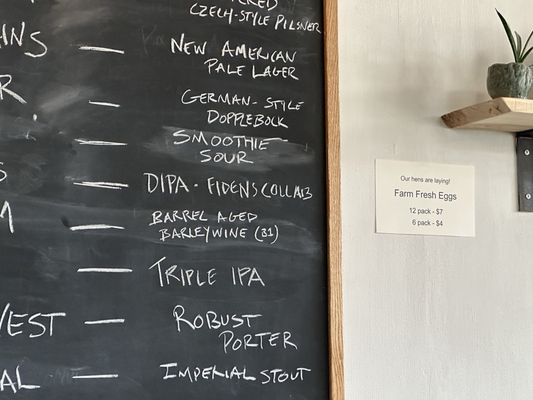 CZECH-STYLE PILSNER
NEW AMERICAN
PALE LAGER
GERMAN-STYLE
DOPPLEBOCK
SMOOTHIE
SOUR
DIPA-FIDENS COLLAB
BARREL AGED
BARLEYWINE (B1)
TRIPLE IPA
ROBUST
PORTER
IMPERIAL STOUT
Our hens are laying!
Farm Fresh Eggs
12 pack - $7
6 pack - $4